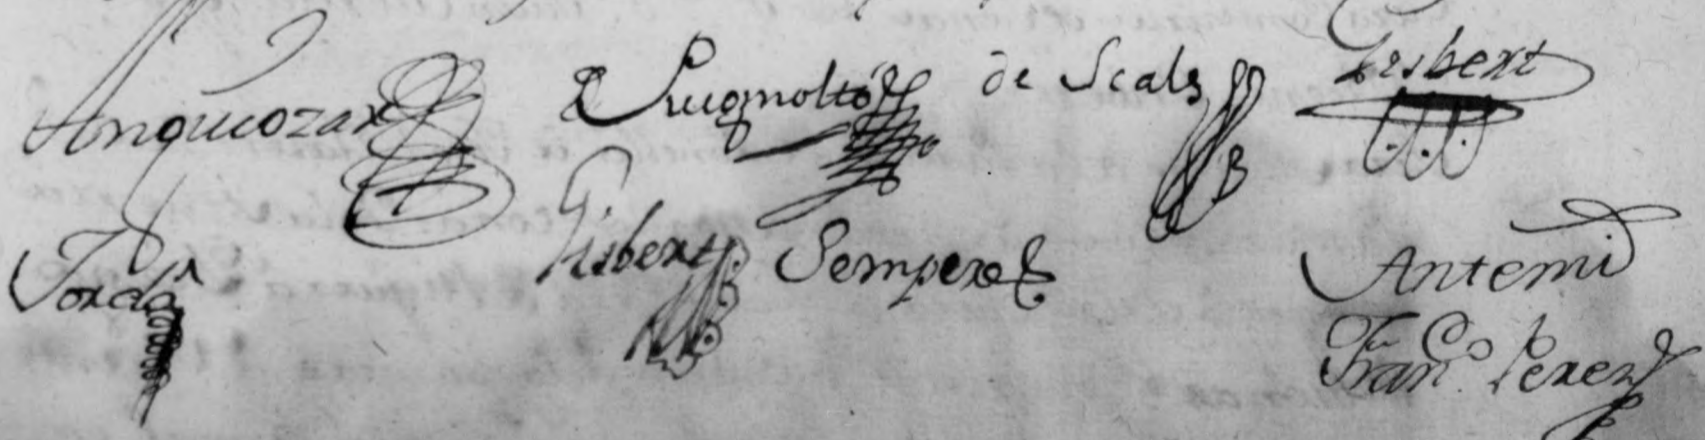 Anguiozar Puigmoltó de Scals Gisbert
Jordá Gisbert Sempere Ante mi
Franco. Perez